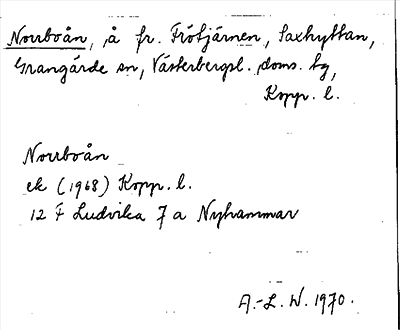 Norrboån, å fr. Frötjärnen, Saxhyttan,
Grangärde sn, Västerbergsl. doms. hg,
Kopp. l.
Norrboån
ek (1968) Kopp. l.
12 F Ludvika 7 a Nyhammar
A.-L. W. 1970.